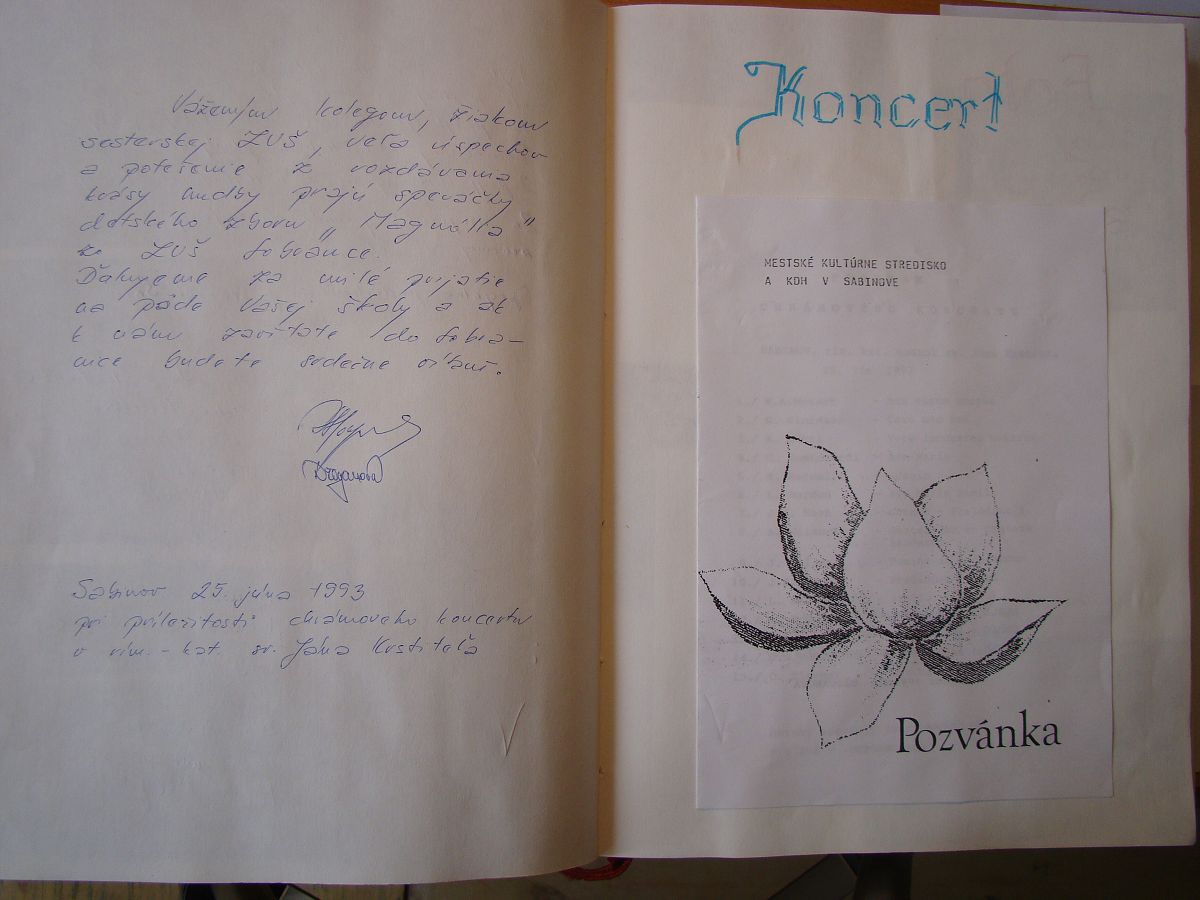 Váženým kolegom, žiakom
sesterskej ZUŠ, veľa úspechov
a potešenie z rozdávania
krásy hudby prajú speváčky
detského zboru „Magnólia"
zo ZUŠ Sobrance.
Ďakujeme za milé prijatie
na pôde Vašej školy a ak
k nám zavítate do Sobra-
niec budete srdečne vítaní.
Sabinov 25. júna 1993
pri príležitosti chrámového koncertu
v rím. - kat. sv. Jána Krstiteľa
Koncert
MESTSKÉ KULTÚRNE STREDISKO
A KDH V SABINOVE
Pozvánka